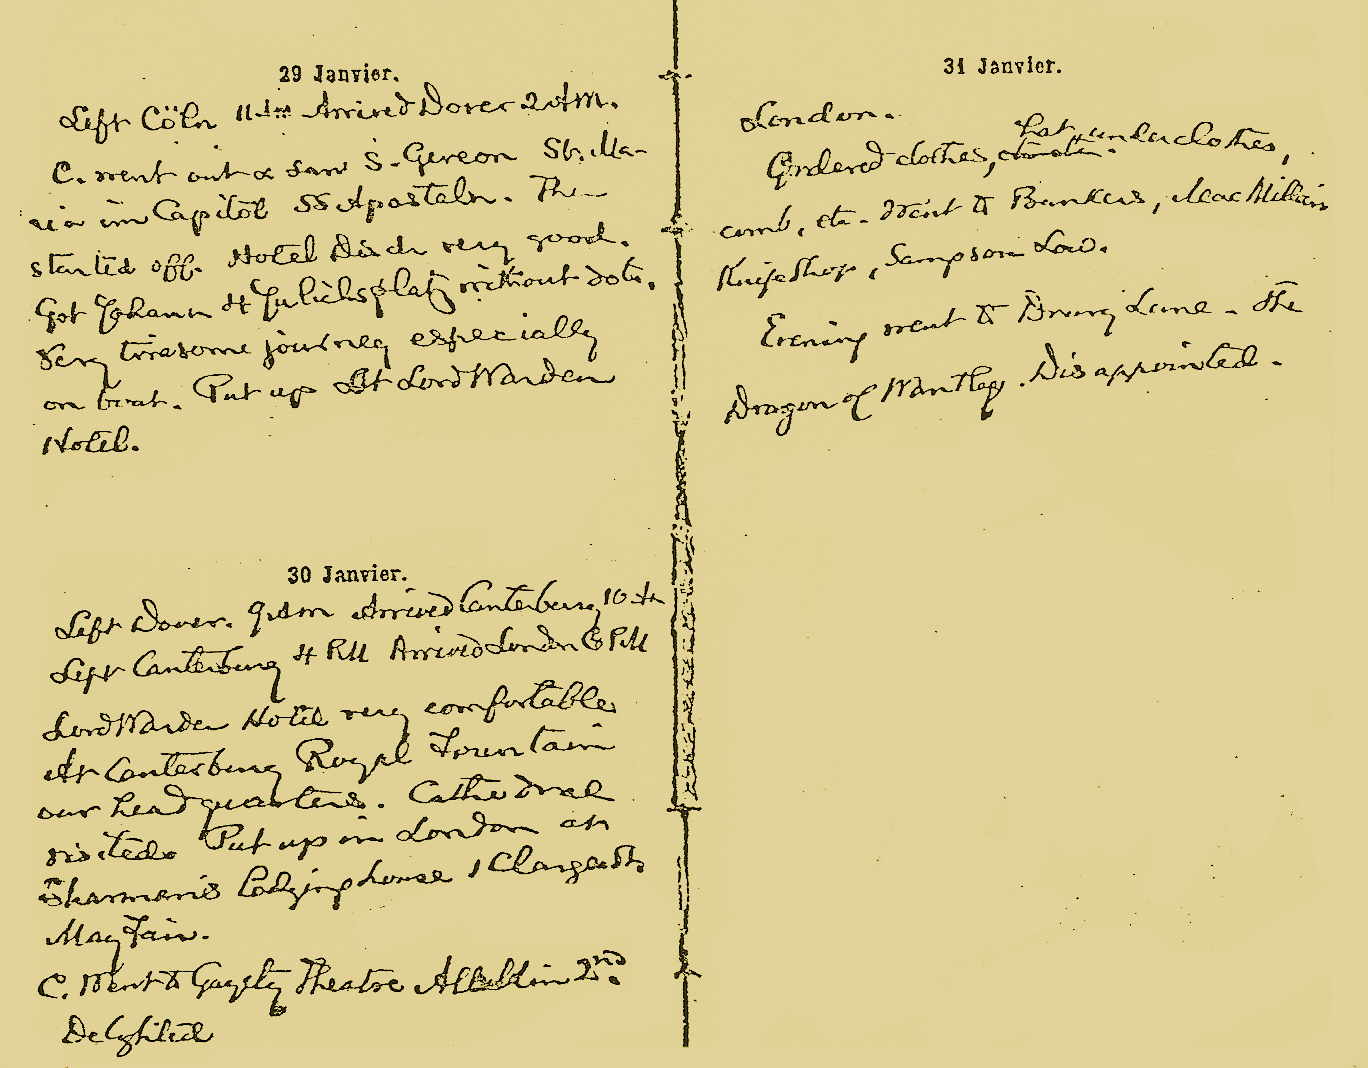 29 Janvier.
Left Cöln 11 Arrived Dover 2 AM.
C. went out & saw S. Gereon St. Ma-
ria im Capitol SS Aposteln. Then
started off. Hotel Disch very good.
Got Johann 4 Julichsplatz without dots.
Very tiresome journey especially
on boat. Put up at Lord Warden
Hotel.
30 Janvier.
Left Dover. 9 AM Arrived Canterbury 10
Left Canterbury 4 PM Arrived London 6 PM
Lord Warden Hotel very comfortable
At Canterbury Royal Fountain
our headquarters. Cathedral
visited. Put up in London at
Sharman's Lodging house 1 Clarges St.
Mayfair.
C. Went to Gayety Theatre Alladin 2nd.
Delghited
31 Janvier.
London.
Ordered clothes, hat, underclothes,
comb, etc. Went to Bankers, MacMillan
Knife Shop, Sampson Low.
Evening went to Drury Lane - The
Dragon of Wantley. Disappointed.